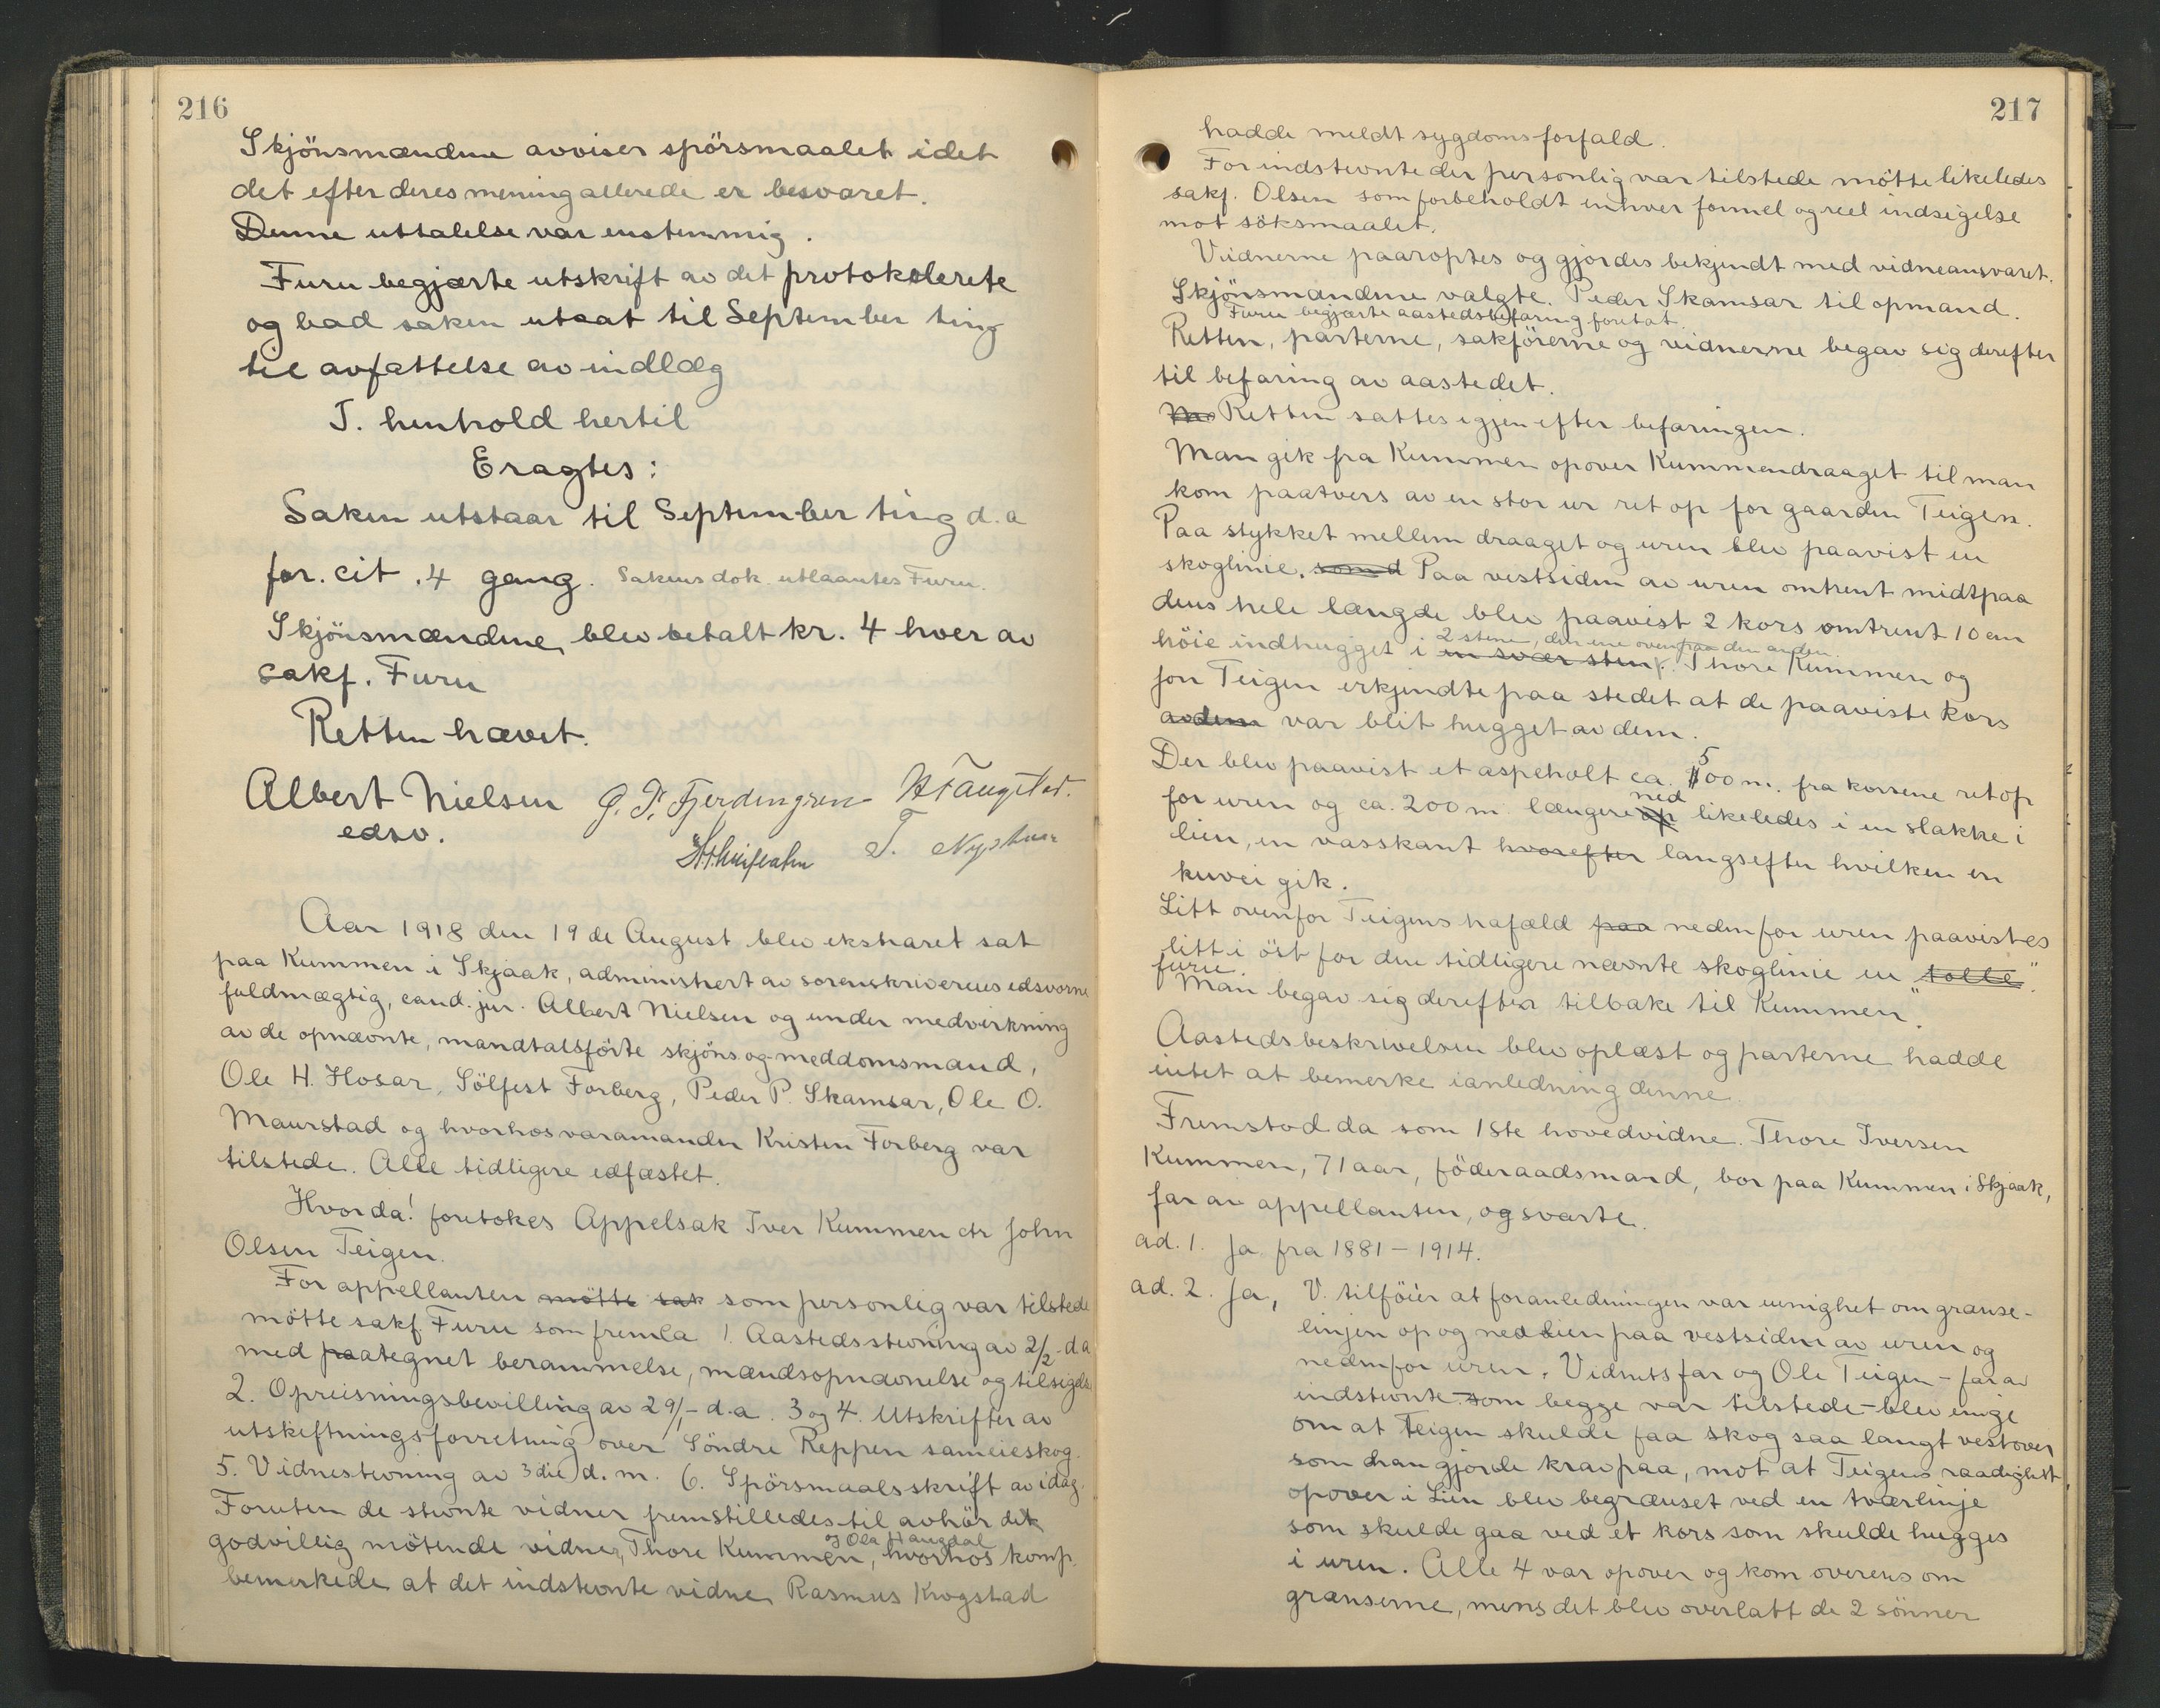 216
Skjönsmændene avviser spörsmaalet idet
det efter deres mening allerede er besvaret.
Denne uttalelse var enstemmig.
Furu begjærte utskrift av det protokolerete
og bad saken utsat til September ting
til avfattelse av indlæg
I. henhold hertil
Eragtes:
Saken utstaar til September ting d.a
for. cit. 4 gang. Sakens dok. utlaantes Furu.
Skjönsmændene blev betalt kr. 4 hver av
sakf. Furu
Retten hævet.
Albert Nielsen
edsv.
Aar 1918 den 19de August blev ekstraret sat
paa Kummen i Skjaak, administrert av sorenskriverens edsvorne
fuldmægtig, cand. jur. Albert Nielsen og under medvirkning
av de opnævnte, mandtalsförte skjöns og meddomsmænd,
Ole H. Hosar, Sölfest Forberg, Peder P. Skamsar, Ole O.
Maurstad og hvorhos varamanden Kristen Forberg var
tilstede. Alle tidligere edfæstet.
Hvorda! foretokes Appelsak Iver Kummen ctr John
Olsen Teigen.
For appellanten mötte sak som personlig var tilstede
mötte sakf. Furu som fremla 1. Aastedsstevning av 2/2 - d.a
med paategnet berammelse, mændsopnævnelse og tilsigelse
2. Opreisningsbevilling av 29/1 - d.a. 3 og 4. Utskrifter av
utskiftningsforretning over Söndre Reppen sameieskog.
5. Vidnestevning av 3die d.m. 6. Spörsmaalsskrift av idag.
Foruten de stevnte vidner fremstilledes til avhör det
godvillig mötende vidner, Thore Kummen, og Ola Haugdal hvorhos komp.
bemerkede at det indstevnte vidne Rasmus Krogstad
217
hadde meldt sygdomsforfald.
For indstevnte der personlig var tilstede mötte likeledes
sakf. Olsen som forbeholdt enhver formel og reel indsigelse
mot söksmaalet.
Vidnerne paaroptes og gjordes bekjendt med vidneansvaret.
Skjönsmændene valgte. Peder Skamsar til opmand.
Furu begjærte aastedsbefaring foretat.
Retten, parterne, sakförerne og vidnerne begav sig derefter
til befaring av aastedet.
Retten sattes igjen efter befaringen.
Man gik fra Kummen opover Kummendraaget til man
kom paatvers av en stor ur ret op for gaarden Teigen.
Paa stykket mellem draaget og uren blev paavist en
skoglinie. som d Paa vestsiden av uren omtrent midtpaa
dens hele længde blev paavist 2 kors omtrent 10 cm
2 stene, den ene ovenpaa den anden
höie indhugget i en svær sten. Thore Kummen og
Jon Teigen erkjendte paa stedet at de paaviste kors
av dem var blit hugget av dem.
Der blev paavist et aspeholt ca. 500 m. fra korsene ret op
for uren og ca. 200 m længere op ned likeledes i en slakke i
lien, en vasskant hvorefter langsefter hvilken en
kuvei gik.
Litt ovenfor Teigens hafæld paa nedenfor uren paavistes
litt i öst for den tidligere nævnte skoglinie en "tolle"
furu.
Man begav sig derefter tilbake til Kummen.
Aastedsbeskrivelsen blev oplæst og parterne hadde
intet at bemerke i anledning denne.
Fremstod da som 1ste hovedvidne. Thore Iversen
Kummen, 71 aar, föderaadsmand, bor paa Kummen i Skjaak,
far av appellanten, og svarte.
ad. 1. Ja fra 1881 - 1914.
ad. 2. Ja, V. tilföier at foranledningen var uenighet om grænse-
linjen op og ned lien paa vestsiden av uren og
nedenfor uren. Vidnets far og Ole Teigen - far av
indstevnte - som begge var tilstede - blev enige
om at Teigen skulde faa skog saa langt vestover
som han gjorde krav paa, mot at Teigens raadighet
opover i Lien blev begrænset ved en tværlinje
som skulde gaa ved et kors som skulde hugges
i uren. Alle 4 var opover og kom overens om
grænserne, mens det blev overlatt de 2 sönner